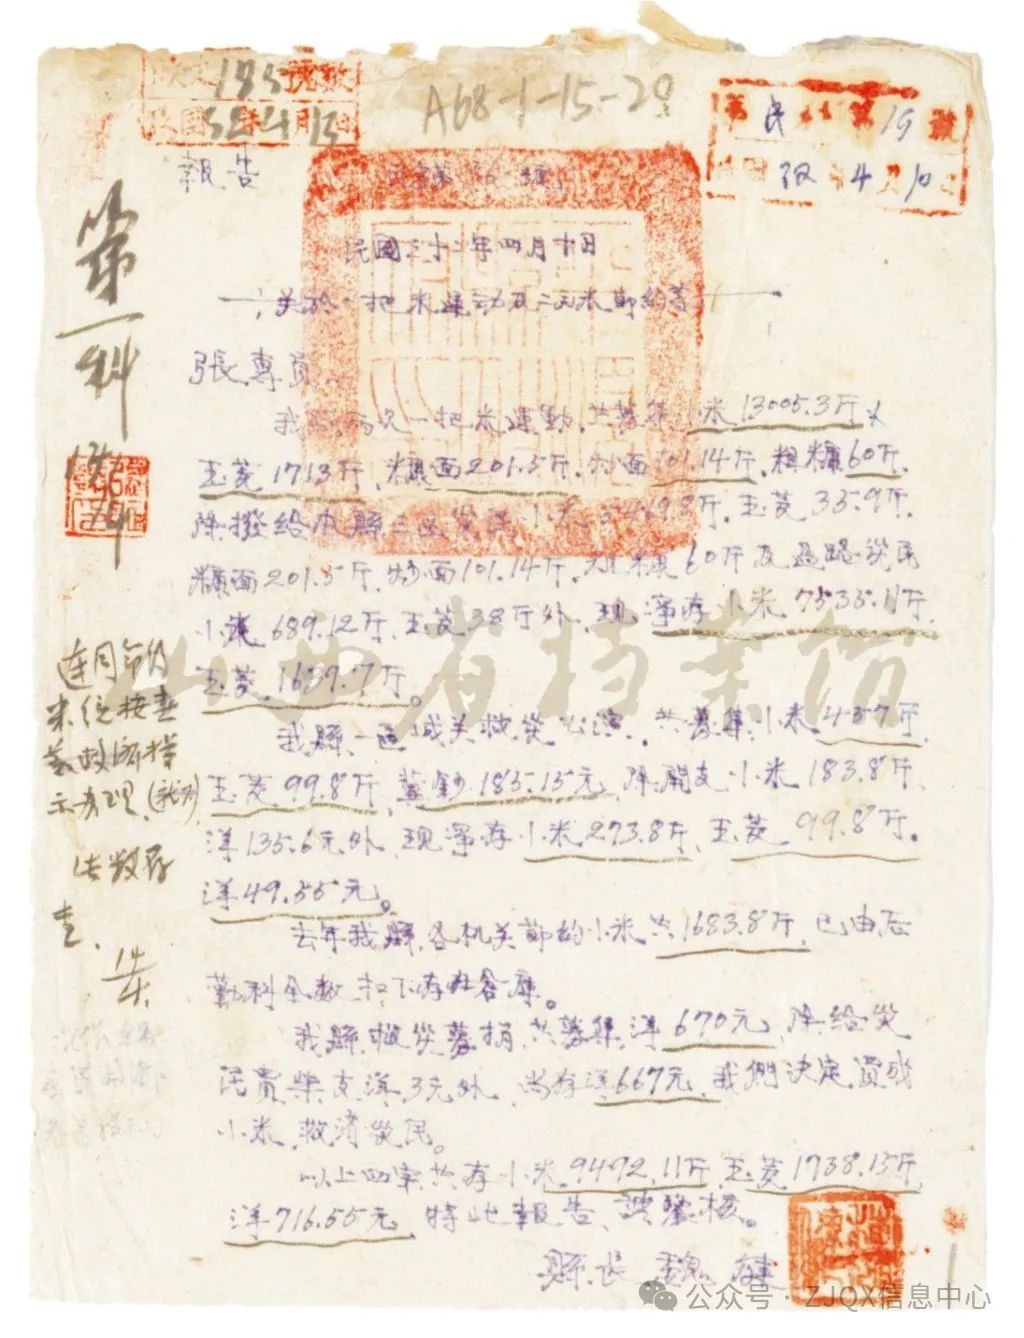 A68-1-15-29
報告
民國三十二年四月十日
关於一把米運動及二两米節約等
張專員
我縣两次一把米運動,共募集小米13005.3斤
玉茭1713斤,糠面201.5斤,炒面101.14斤,粗糠60斤.
除撥給本縣三区災民小米 斤,玉茭33.9斤.
糠面201.5斤,炒面101.14斤,粗糠60斤及過路災民
小米689.12斤,玉茭38斤外,現淨存小米7535.11斤,
玉茭1639.7斤。
我縣 城关救災公演,共募集小米457斤
玉茭99.8斤,冀鈔185.15元,除開支小米183.8斤,
洋135.6元外,現淨存小米273.8斤,玉茭99.8斤。
洋49.55元。
去年我縣各机关節約小米共1683.8斤,已由后
勤科全数扣下存在倉庫。
我縣救災募捐共募集洋670元,除給災
民買柴支洋3元外,尚存洋667元,我們决定買成
小米,救濟災民。
以上四宗共存小米9492.11斤,玉茭1738.15斤
洋716.55元,特此報告,請鑒核。
縣長 魏 健
第一科
連同節約
米 按春
救濟指
示办理,
此数存
查,
山西省档案馆
公众号 · ZJQX信息中心